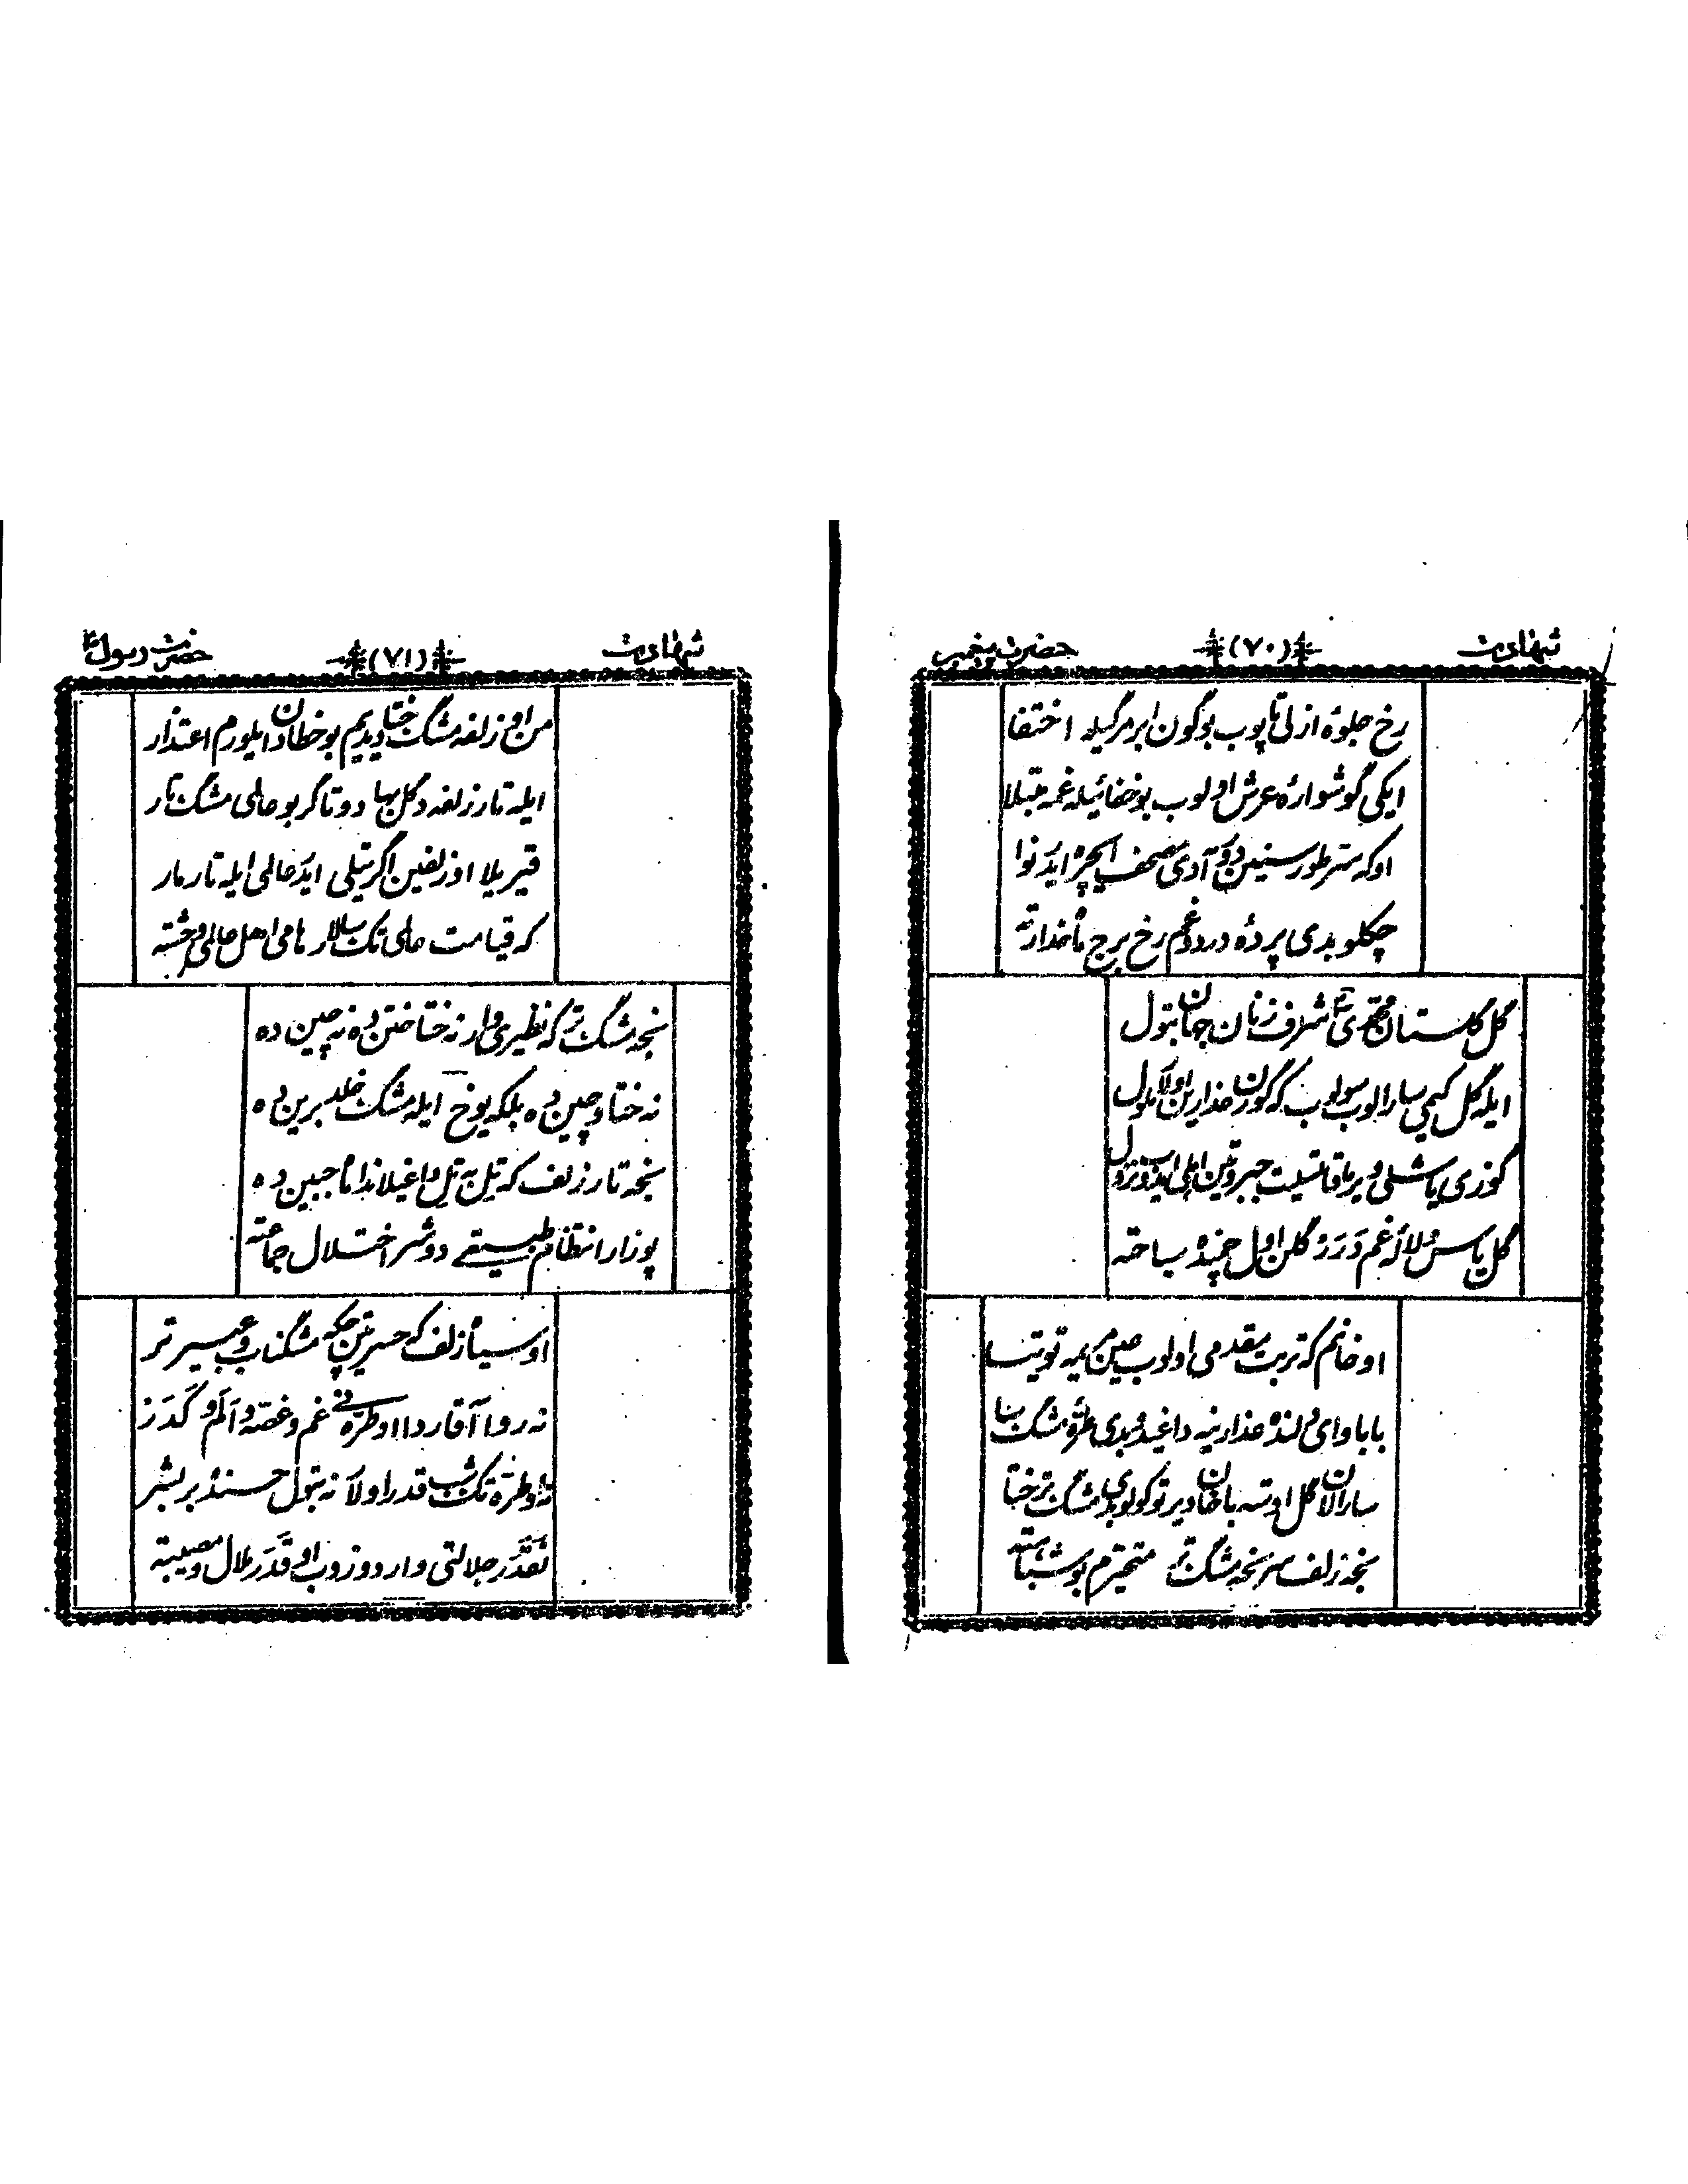 شهادت (۷۰) حضرت پیغمبر
رخ جلوهٔ ازلی تاپوب بوگون ابر مرگیله اختفا
ایکی گوشوارهٔ عرش اولوب بو خفائیله غمه مبتلا
اوکه سر طور سنین دور آدی مصحف ایچره ایدر نوا
چکلوبدی پردهٔ درد و غم رخ برج ماه عذارته
گل گلستان محمدی شرف زنان جهان بتول
ایله گل کیمی سارالوب سولوب که گورن عذارین اولار ملول
گوزی یاشلی ویر
گل یاس و لاله غم گلن اول
او خانم که تربت مقدمی اولوب عین توتیا
بابا وای دلنده عذارینه داغیدوبدی طرهٔ مشک سا
سارالان گل اوسته باخان دیر توکولوبدی مشک تر ختا
نجه زلف سر نجه مشک تر متحیرم بو شباهته
شهادت (۷۱) حضرت رسول
من او زلفه مشک ختا دیدیم بو خطادن ایلورم اعتذار
ایله تار زلفه دگل بها دوتا گر بو عالمی مشک تار
قیریلا او زلفین اگر تیلی ایدر عالمی ایله تار مار
که قیامت عالمی تک سالار هامی اهل عالمی وحشته
نجه مشک تر که نظیری وار نه ختا ختن ده نه چین ده
نه ختا و چین ده بلکه یوخ ایله مشک خلد برین ده
نجه تار زلف که تیل به تیل داغیلاندا ماه جبین ده
پوزار انتظام طبیعتی دوشر اختلال جماعته
او سیاه زلف که حسرتین چکه مشکناب و عبیر تر
نه روا آقاردا او طره نی غم و غصه و الم و کدر
نه او طره تک شب قدر اولار نه بتول حسنده بر بشر
نقدر جلالتی وار دوزوب او قدر ملال و مصیبته